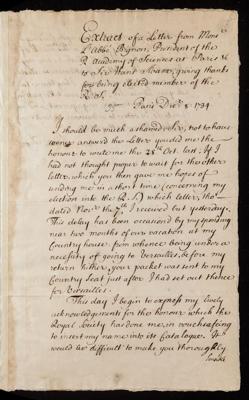 Extract of a Letter from Mons.r
L'abbé Bignon, President of the
R Academy of Sciences at Paris &c
to Sir Hans Sloane, giving thanks
for being elected member of the
R. S.
Paris Dec.r 8. 1734
I should be much ashamed Sir, not to have
sooner answer'd the Letter you did me the
honour to write me the 28th Oct. last, if I
had not thought proper to wait for the other
letter, which you then gave me hopes of
sending me in a short time (concerning my
election into the R. S.) which letter, tho'
dated Nov.r the 7th I received but yesterday.
This delay has been occasion'd by my spending
near two months of our vacation at my
Country house, from whence being under a
necessity of going to Versailles, before my
return hither, your packet was sent to my
Country Seat just after I had set out thence
for Versailles.
This day I begin to express my lively
acknowledgements for the honour which the
Royal Society has done me, in vouchsafing
to insert my name into its Catalogue. It
would be difficult to make you thoroughly